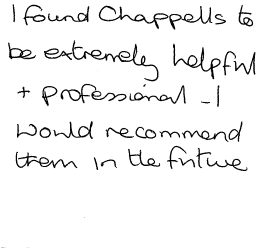 I found Chappells to
be extremely helpful
+ professional - I
would recommend
them in the future